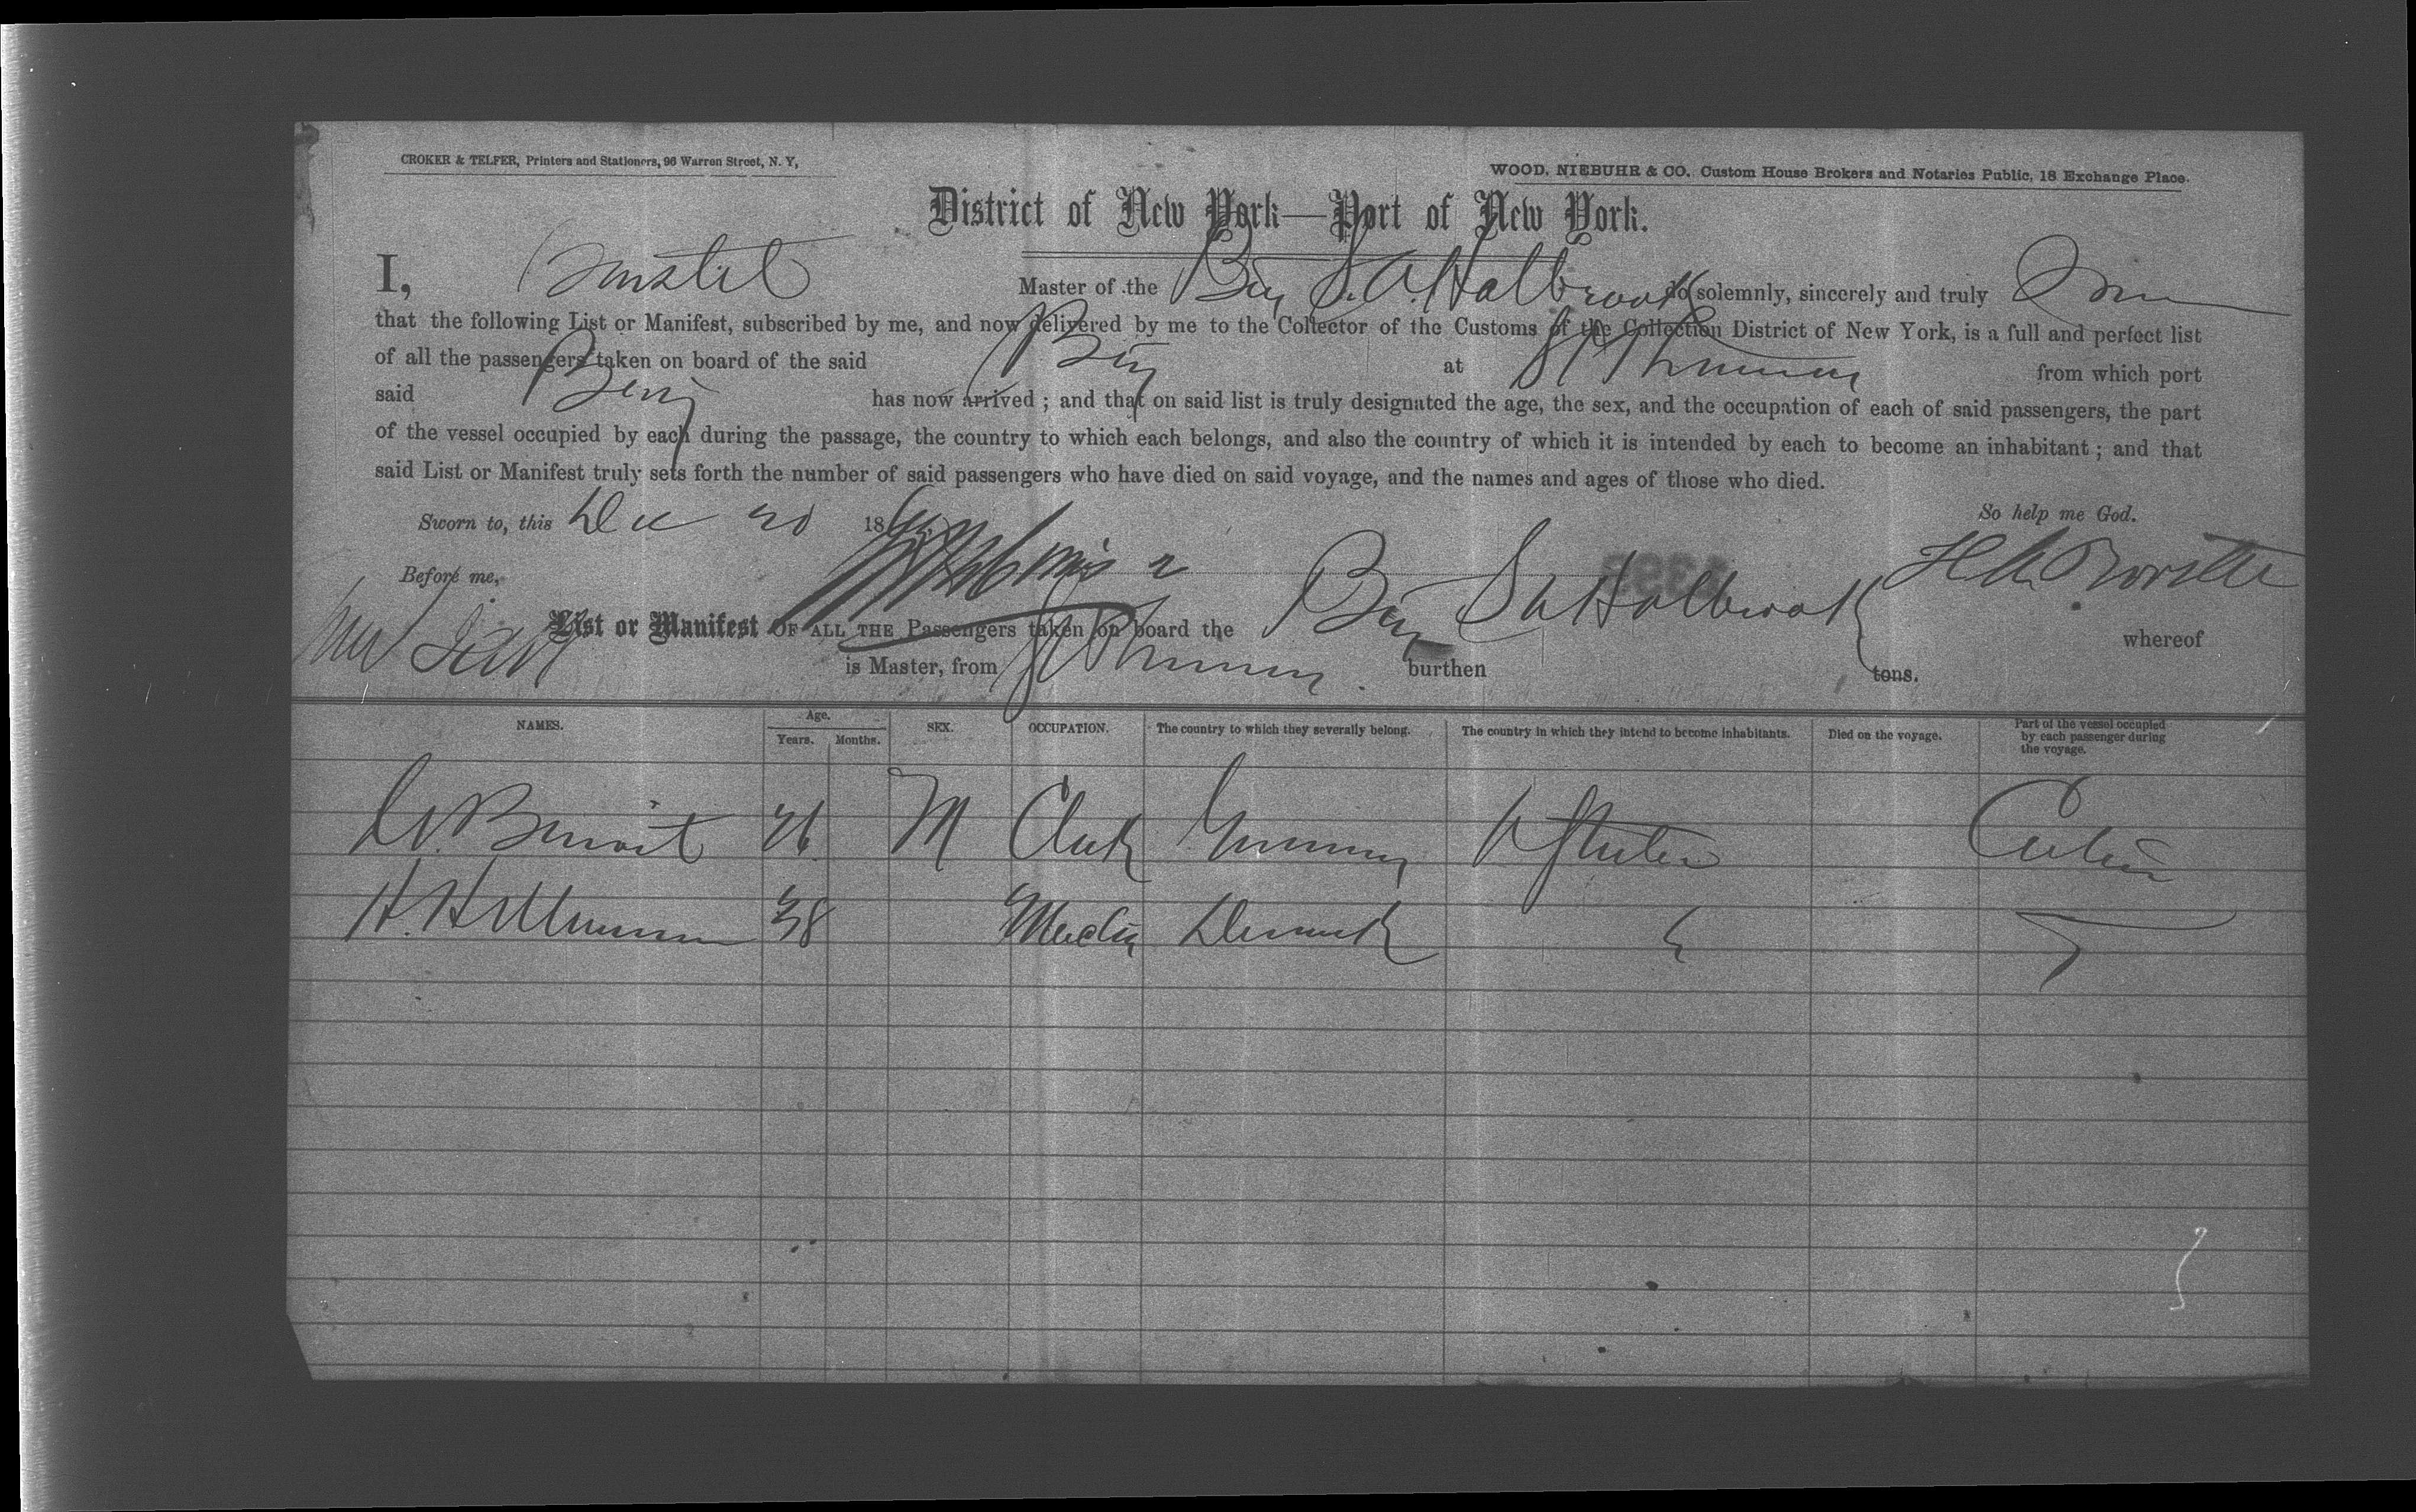 CROKER & TELFER, Printers and Stationers, 96 Warren Street, N. Y,
WOOD, NIEBUHR & CO. Custom House Brokers and Notaries Public, 18 Exchange Place.
District of New York—Port of New York.
I, Master of the S. A. Holbrook do solemnly, sincerely and truly
that the following List or Manifest, subscribed by me, and now delivered by me to the Collector of the Customs of the Collection District of New York, is a full and perfect list
of all the passengers taken on board of the said at from which port
said has now arrived ; and that on said list is truly designated the age, the sex, and the occupation of each of said passengers, the part
of the vessel occupied by each during the passage, the country to which each belongs, and also the country of which it is intended by each to become an inhabitant ; and that
said List or Manifest truly sets forth the number of said passengers who have died on said voyage, and the names and ages of those who died.
So help me God.
Sworn to, this Dec 20 186
Before me,
List or Manifest OF ALL THE Passengers taken on board the S A Holbrook whereof
is Master, from burthen tons.
NAMES. Age. Years. Months. SEX. OCCUPATION. The country to which they severally belong. The country in which they intend to become inhabitants. Died on the voyage. Part of the vessel occupied by each passenger during the voyage.
Benoit M Clerk Germany U States Cabin
H. 38 Denmark